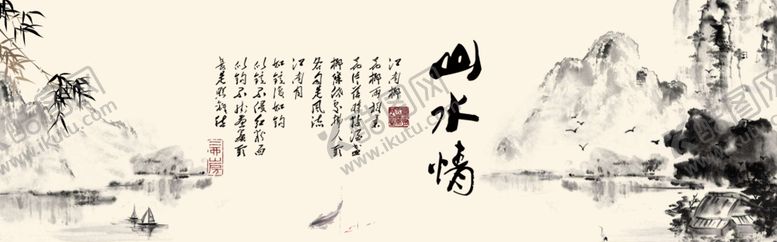 山水情
江南柳
花柳两相柔
花片落时黏酒盏
柳条低处拂人头
各自是风流
江南月
如镜复如钩
似镜不侵红粉面
似钩不挂画帘头
长是照离愁